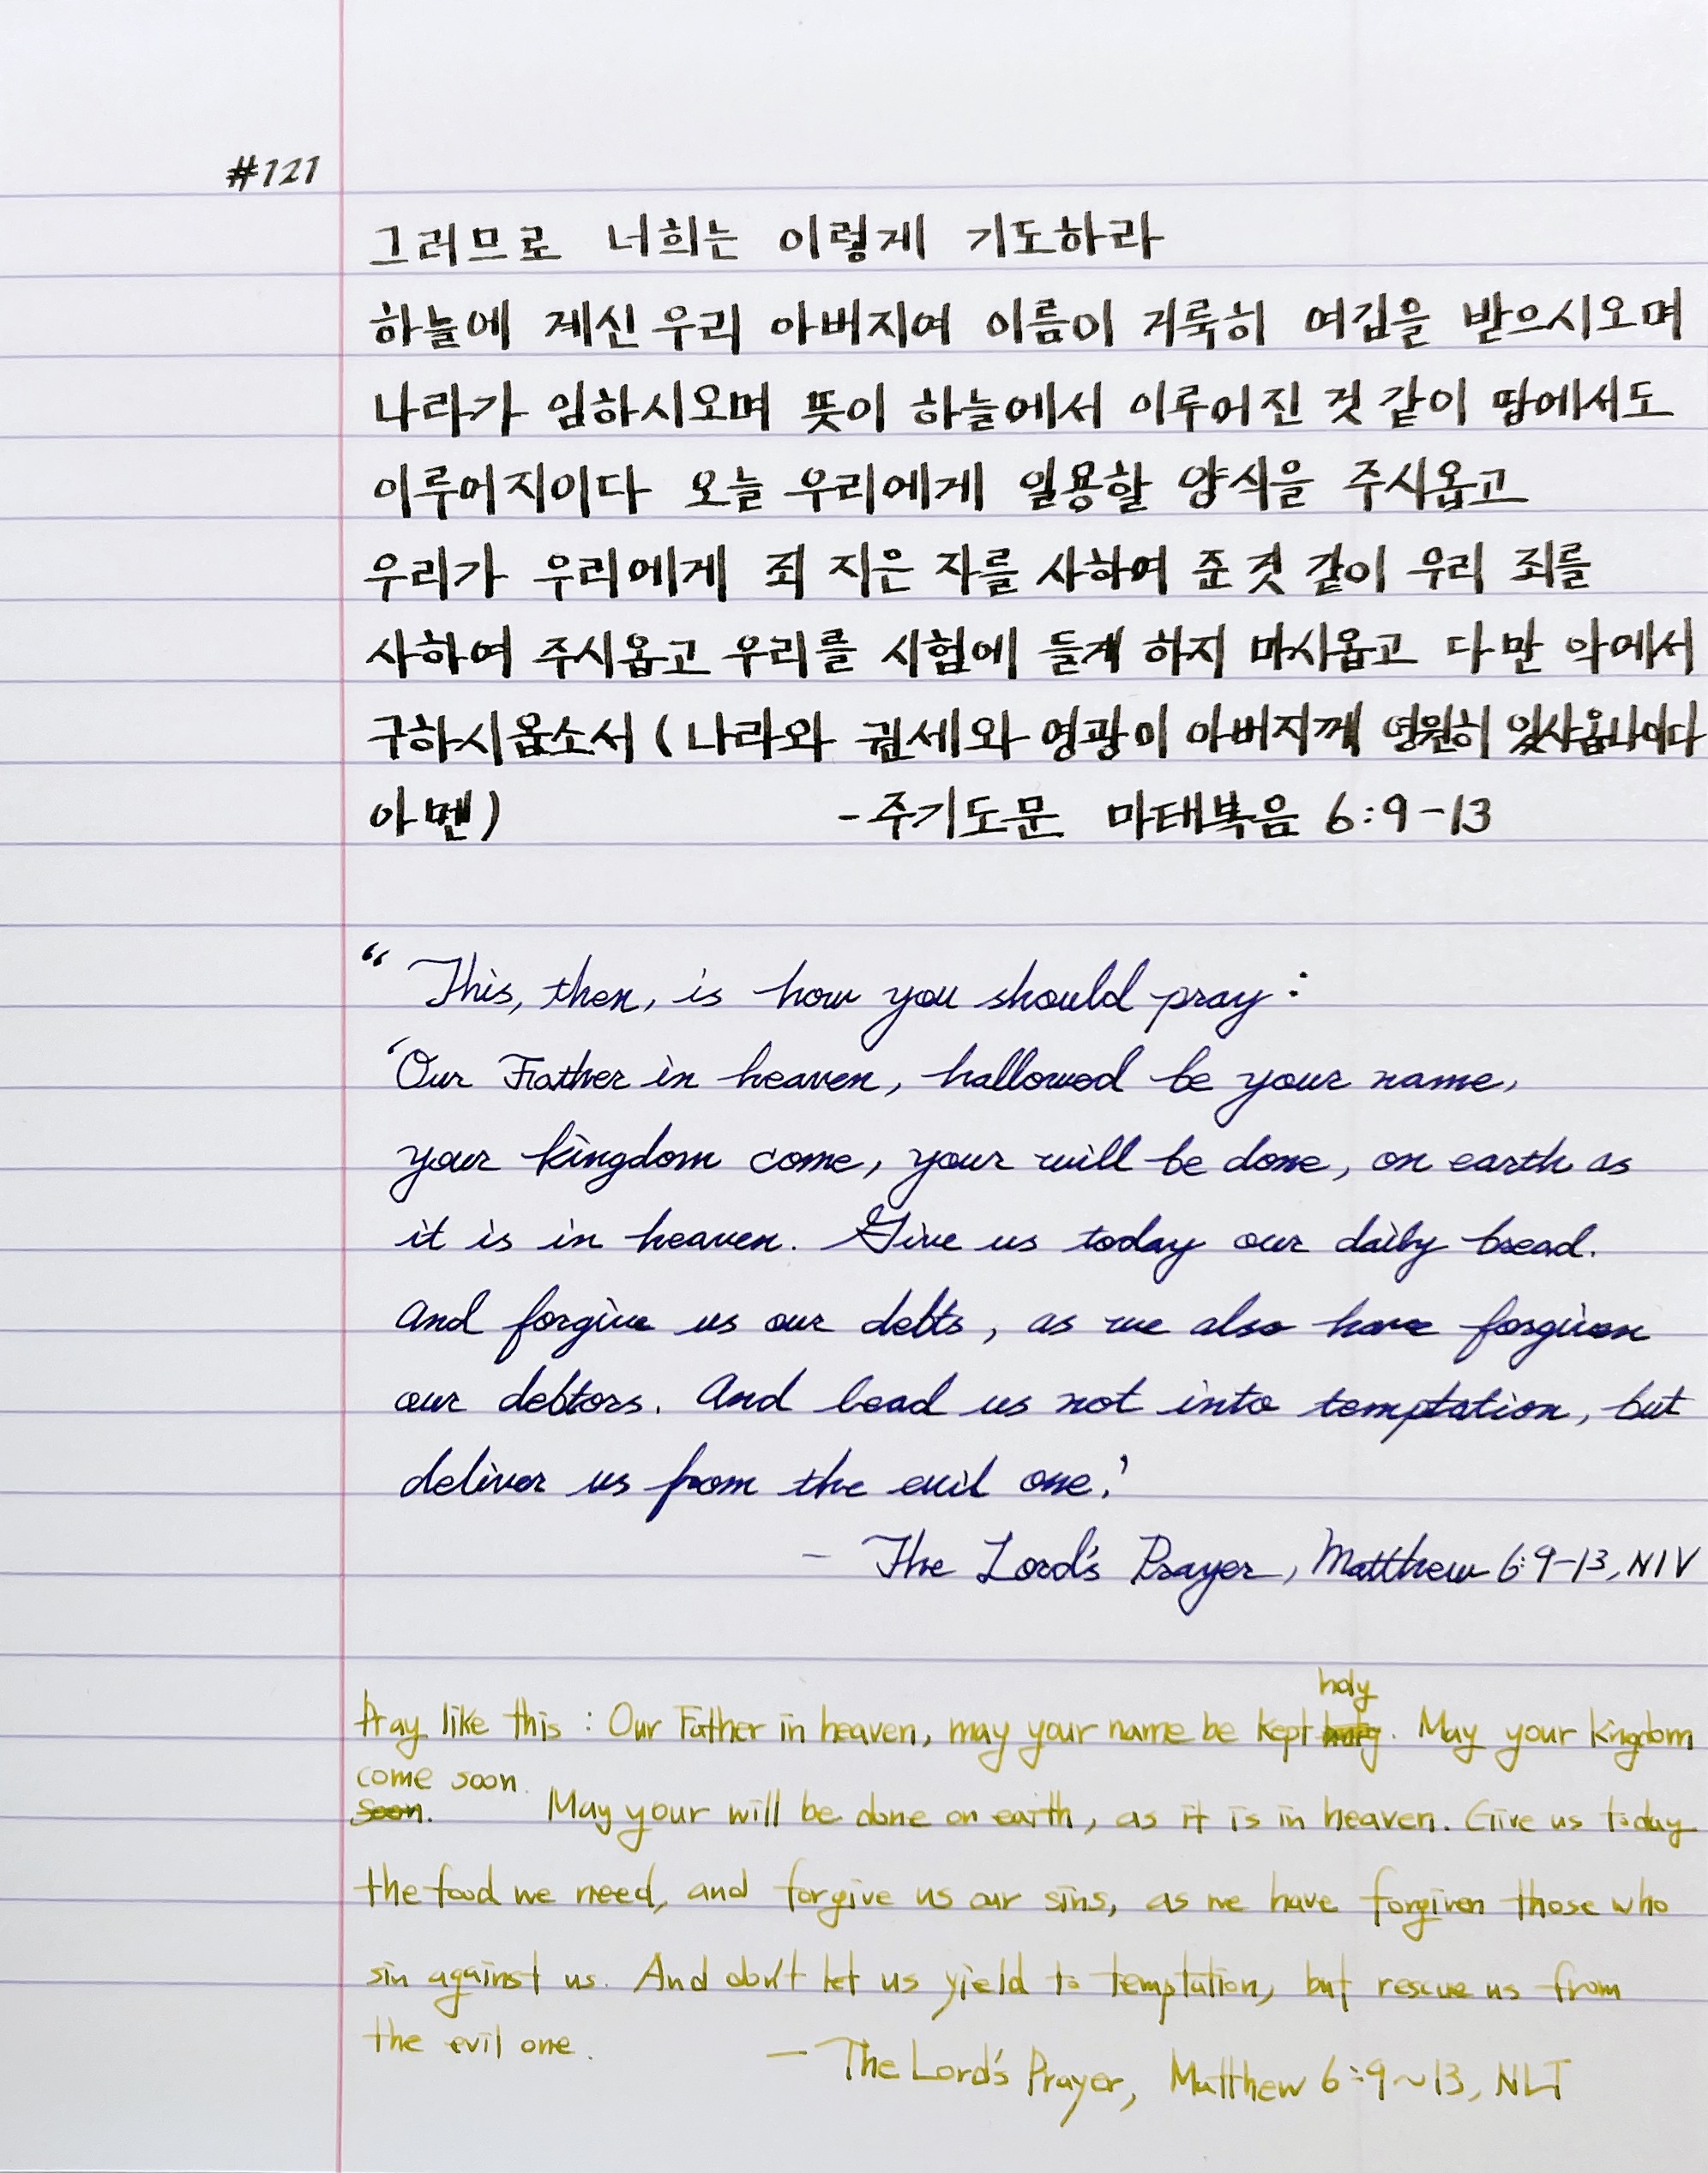 #121
그러므로 너희는 이렇게 기도하라
하늘에 계신 우리 아버지여 이름이 거룩히 여김을 받으시오며
나라가 임하시오며 뜻이 하늘에서 이루어진 것 같이 땅에서도
이루어지이다 오늘 우리에게 일용할 양식을 주시옵고
우리가 우리에게 죄 지은 자를 사하여 준 것 같이 우리 죄를
사하여 주시옵고 우리를 시험에 들게 하지 마시옵고 다만 악에서
구하시옵소서 (나라와 권세와 영광이 아버지께 영원히 있사옵나이다
아멘) -주기도문 마태복음 6:9-13
“This, then, is how you should pray:
‘Our Father in heaven, hallowed be your name,
your kingdom come, your will be done, on earth as
it is in heaven. Give us today our daily bread.
And forgive us our debts, as we also have forgiven
our debtors. And lead us not into temptation, but
deliver us from the evil one.’
- The Lord's Prayer, Matthew 6:9-13, NIV
holy
Pray like this : Our Father in heaven, may your name be kept holy. May your kingdom
come soon.
soon. May your will be done on earth, as it is in heaven. Give us today
the food we need, and forgive us our sins, as we have forgiven those who
sin against us. And don't let us yield to temptation, but rescue us from
the evil one. - The Lord's Prayer, Matthew 6:9~13, NLT